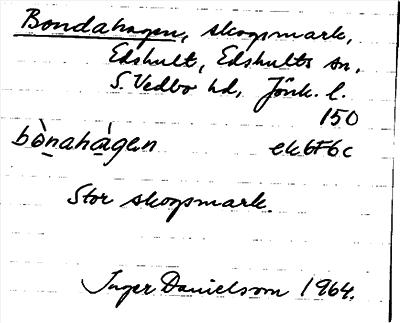 Bondahagen, skogsmark,
Edshult, Edshults sn,
S. Vedbo hd, Jönk. l.
150
bò̱nahà̱gen ek6F6c
Stor skogsmark.
Inger Danielsson 1964.